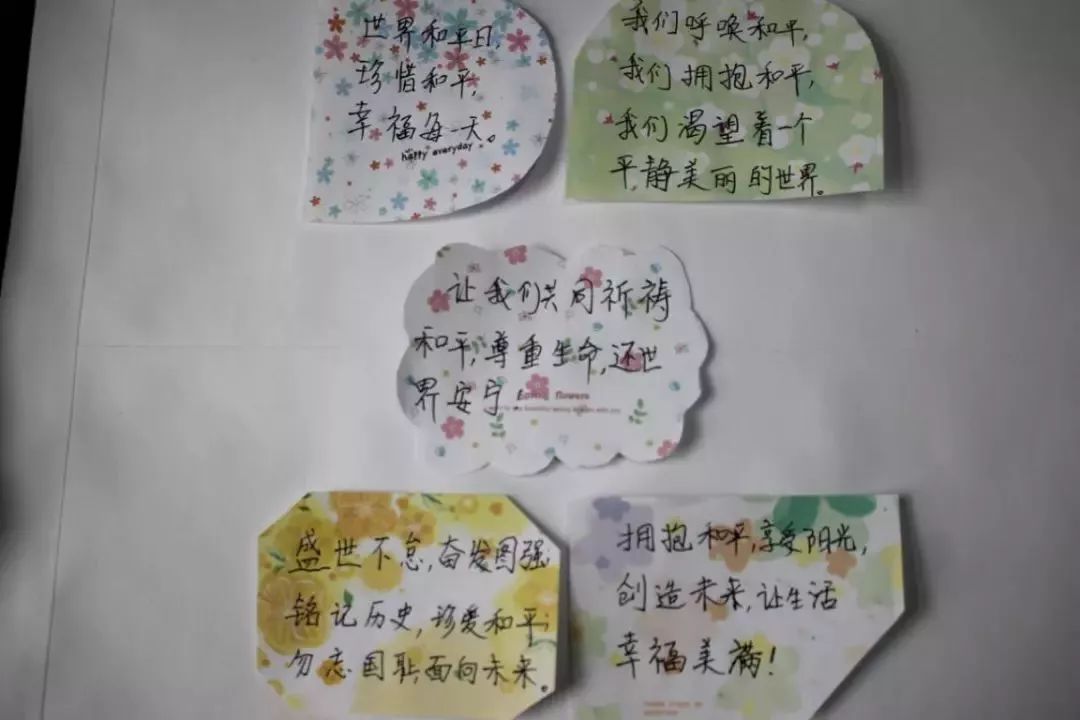 世界和平日,
珍惜和平,
幸福每一天。
happy everyday
我们呼唤和平,
我们拥抱和平,
我们渴望着一个
平静美丽的世界。
让我们共同祈祷
和平,尊重生命,还世
界安宁
flowers
盛世不怠,奋发图强
铭记历史,珍爱和平;
勿忘国耻,面向未来。
拥抱和平,享受阳光,
创造未来,让生活
幸福美满!